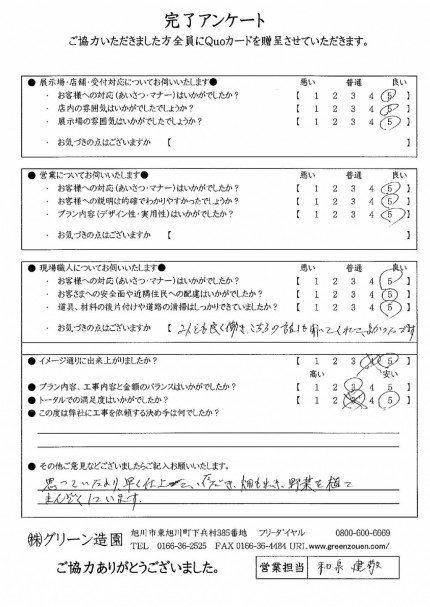 完了アンケート
ご協力いただきました方全員にQuoカードを贈呈させていただきます。
●展示場・店舗・受付対応についてお伺いいたします● 悪い 普通 良い
・ お客様への対応(あいさつ・マナー)はいかがでしたか? 【 1 2 3 4 5 】
・ 店内の雰囲気はいかがでしたでしょうか? 【 1 2 3 4 5 】
・ 展示場の雰囲気はいかがでしたでしょうか? 【 1 2 3 4 5 】
・ お気づきの点はございますか 【
●営業についてお伺いいたします● 悪い 普通 良い
・ お客様への対応(あいさつ・マナー)はいかがでしたか? 【 1 2 3 4 5 】
・ お客様への説明は的確でわかりやすかったでしょうか? 【 1 2 3 4 5 】
・ プラン内容(デザイン性・実用性)はいかがでしたか? 【 1 2 3 4 5 】
・ お気づきの点はございますか 【
●現場職人についてお伺いいたします● 悪い 普通 良い
・ お客様への対応(あいさつ・マナー)はいかがでしたか? 【 1 2 3 4 5 】
・ お客さまへの安全面や近隣住民への配慮はいかがでしたか? 【 1 2 3 4 5 】
・ 道具、材料の後片付けや道路の清掃はしっかりできていましたか? 【 1 2 3 4 5 】
・ お気づきの点はございますか 【 みんな良く働き、こちらの話も聞いてくれてよかったです
●イメージ通りに出来上がりましたか? 【 1 2 3 4 5 】
高い 安い
●プラン内容、工事内容と金額のバランスはいかがでしたか? 【 1 2 3 4 5
●トータルでの満足度はいかがでしたか? 【 1 2 3 4 5 】
●この度は弊社に工事を依頼する決め手は何でしたか?
●その他ご意見などございましたらご記入お願いいたします。
思っていたより早く仕上 いただき、畑もでき、野菜を植て
まんぞくしています。
㈱グリーン造園 旭川市東旭川町下兵村385番地 フリーダイヤル 0800-600-6669
TEL 0166-36-2525 FAX 0166-36-4484 URL www.greenzouen.com/
ご協力ありがとうございました。 営業担当 和泉 建敬